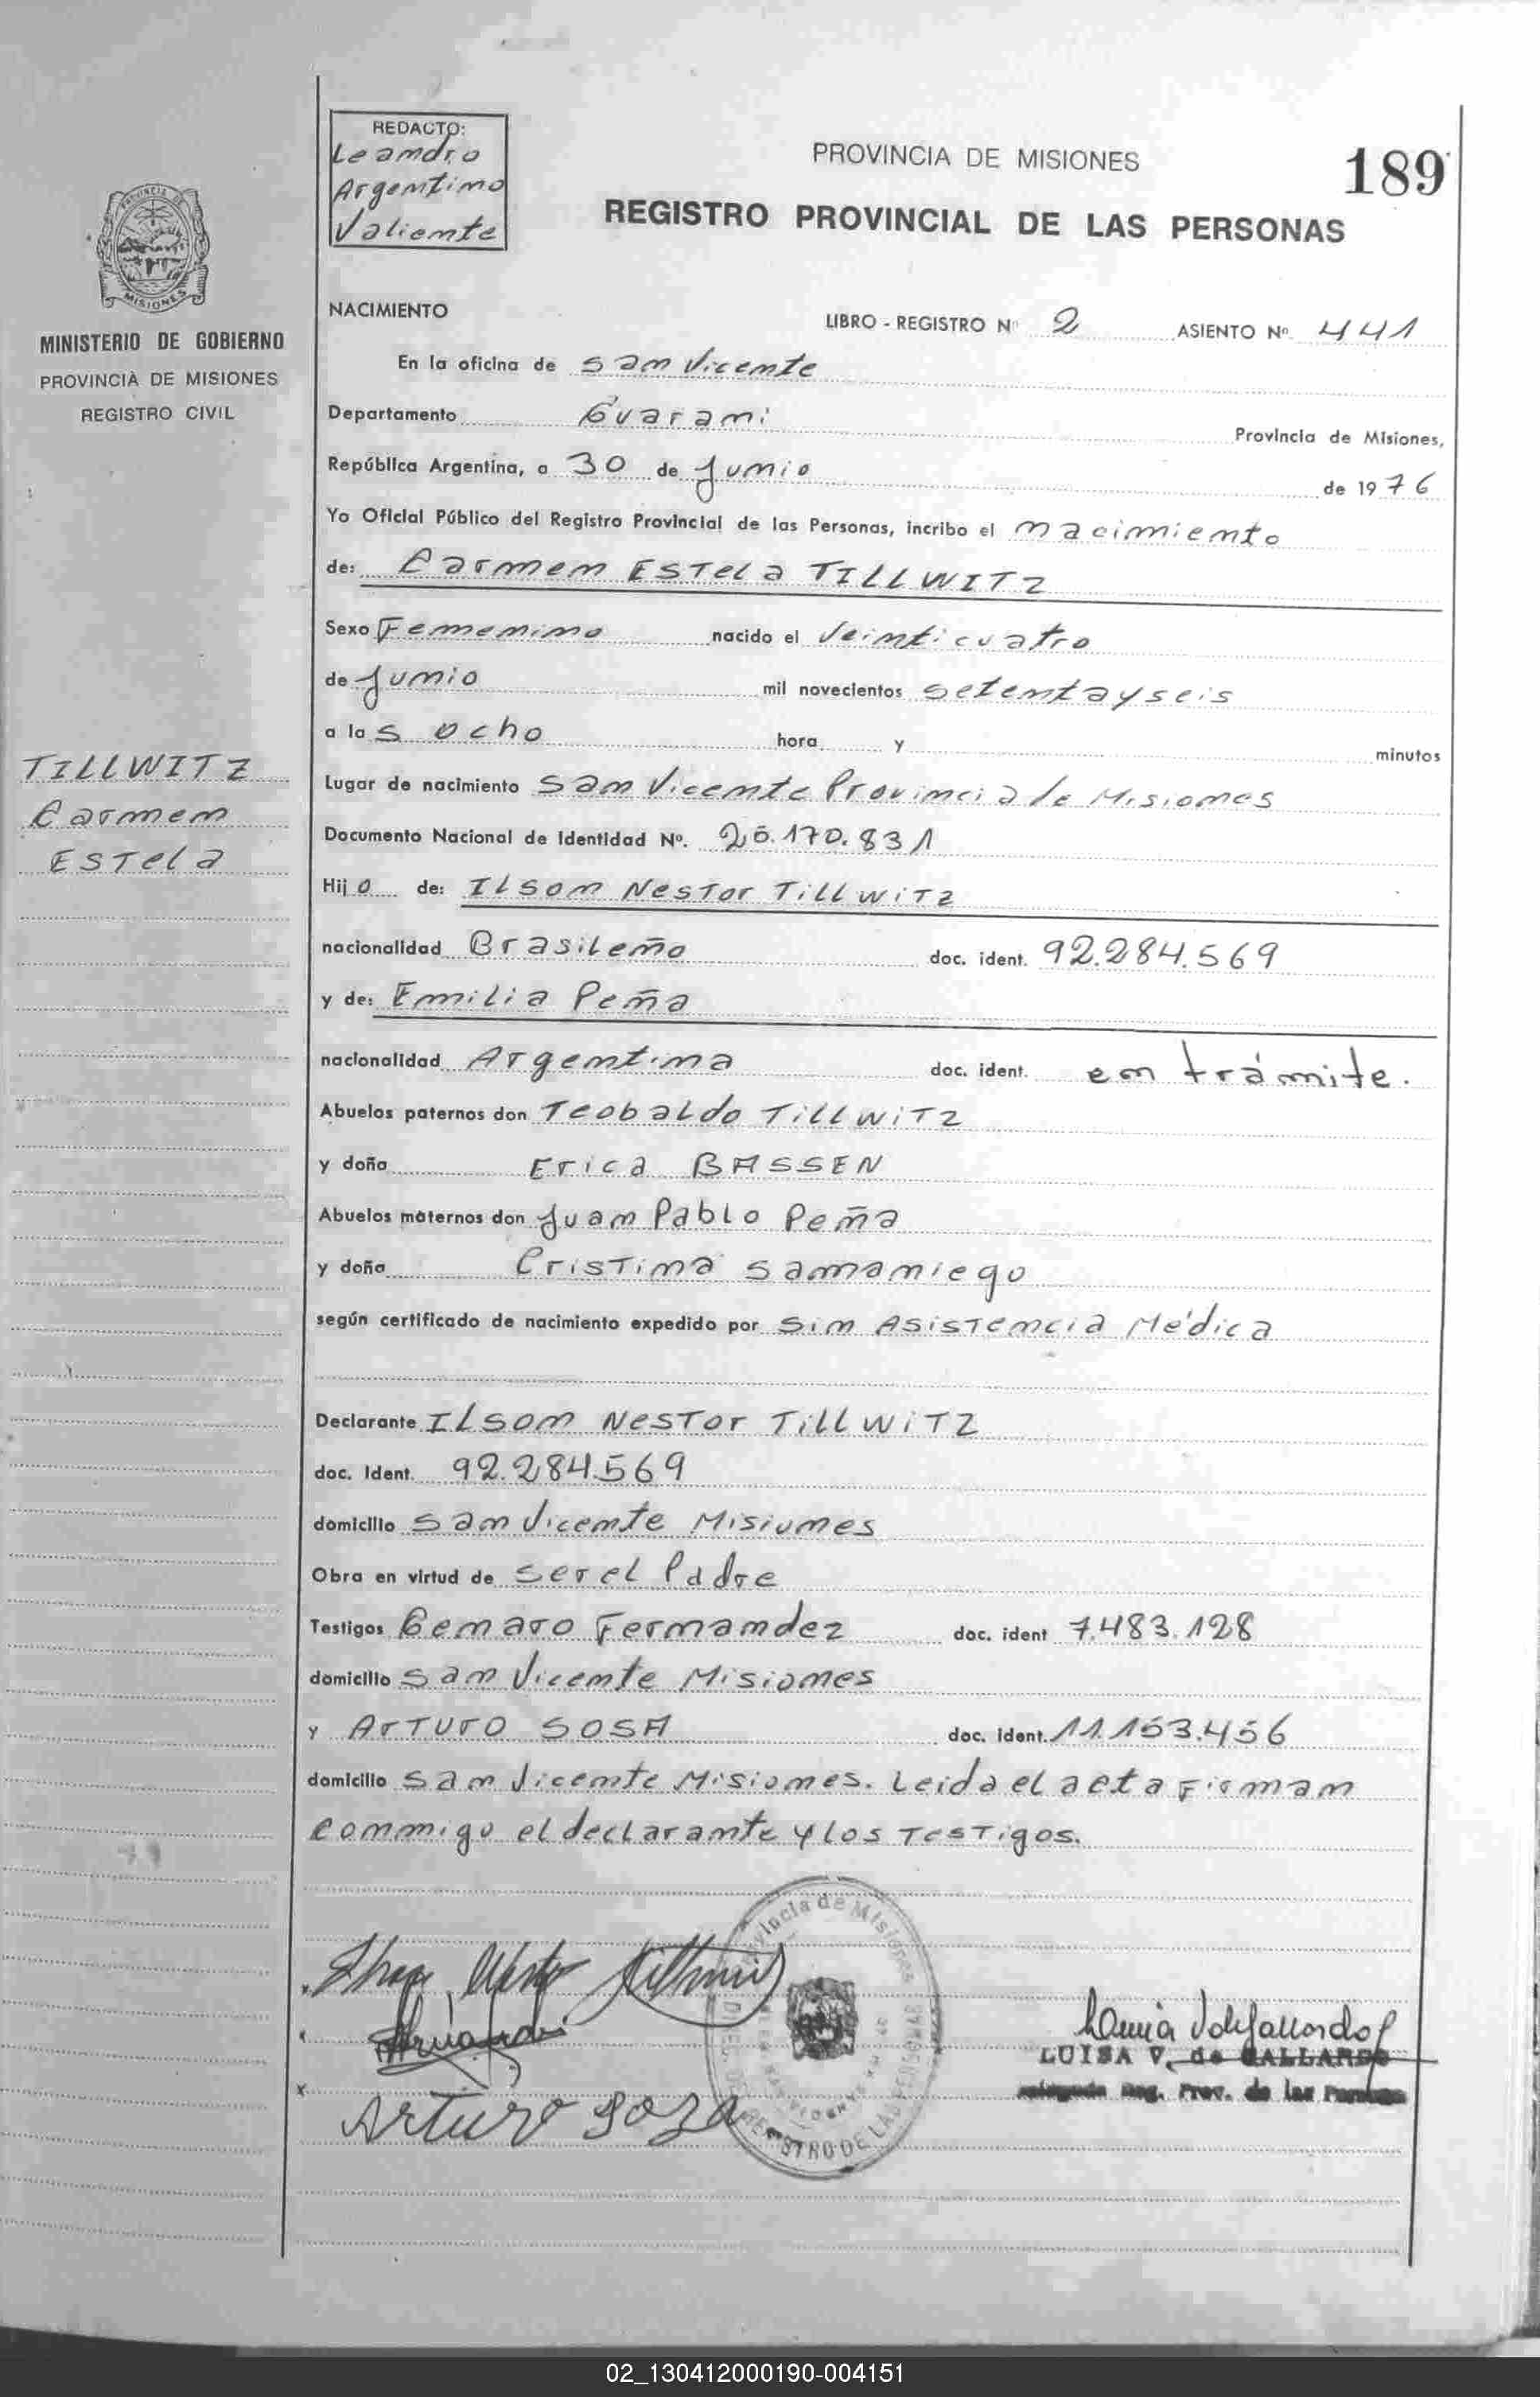 REDACTO:
Leandro
Argentino
Valiente
PROVINCIA DE MISIONES
189
REGISTRO PROVINCIAL DE LAS PERSONAS
PROVINCIA DE
MISIONES
MINISTERIO DE GOBIERNO
PROVINCIA DE MISIONES
REGISTRO CIVIL
NACIMIENTO
LIBRO - REGISTRO Nº 2 ASIENTO Nº 441
En la oficina de San Vicente
Departamento Guarani Provincia de Misiones,
República Argentina, a 30 de Junio de 1976
Yo Oficial Público del Registro Provincial de las Personas, incribo el nacimiento
de: Carmen ESTela TILLWITZ
Sexo Femenino nacido el Veinticuatro
de Junio mil novecientos setentayseis
a las ocho hora y minutos
TILLWITZ
Carmen
ESTela
Lugar de nacimiento San Vicente Provincia de Misiones
Documento Nacional de Identidad Nº. 25.170.831
Hijo de: ILSON NESTOr TiLLWiTZ
nacionalidad Brasileño doc. ident. 92.284.569
y de: Emilia Peña
nacionalidad Argentina doc. ident. en trámite.
Abuelos paternos don Teobaldo TiLLWiTZ
y doña Erica BASSEN
Abuelos maternos don Juan Pablo Peña
y doña Cristina Samaniego
según certificado de nacimiento expedido por Sin Asistencia Médica
Declarante ILSON NESTOr TiLLWiTZ
doc. Ident. 92.284.569
domicilio San Vicente Misiones
Obra en virtud de Ser el Padre
Testigos Genaro Fernandez doc. ident 7.483.128
domicilio San Vicente Misiones
y ArTUrO SOSA doc. ident. 11.153.456
domicilio San Vicente Misiones. Leida el acta Firman
conmigo el declarante y los Testigos.
Arturo Soza
LUISA V. de GALLARDO
Reg. Prov. de las Personas
Provincia de Misiones
REGISTRO DE LAS PERSONAS
02_130412000190-004151